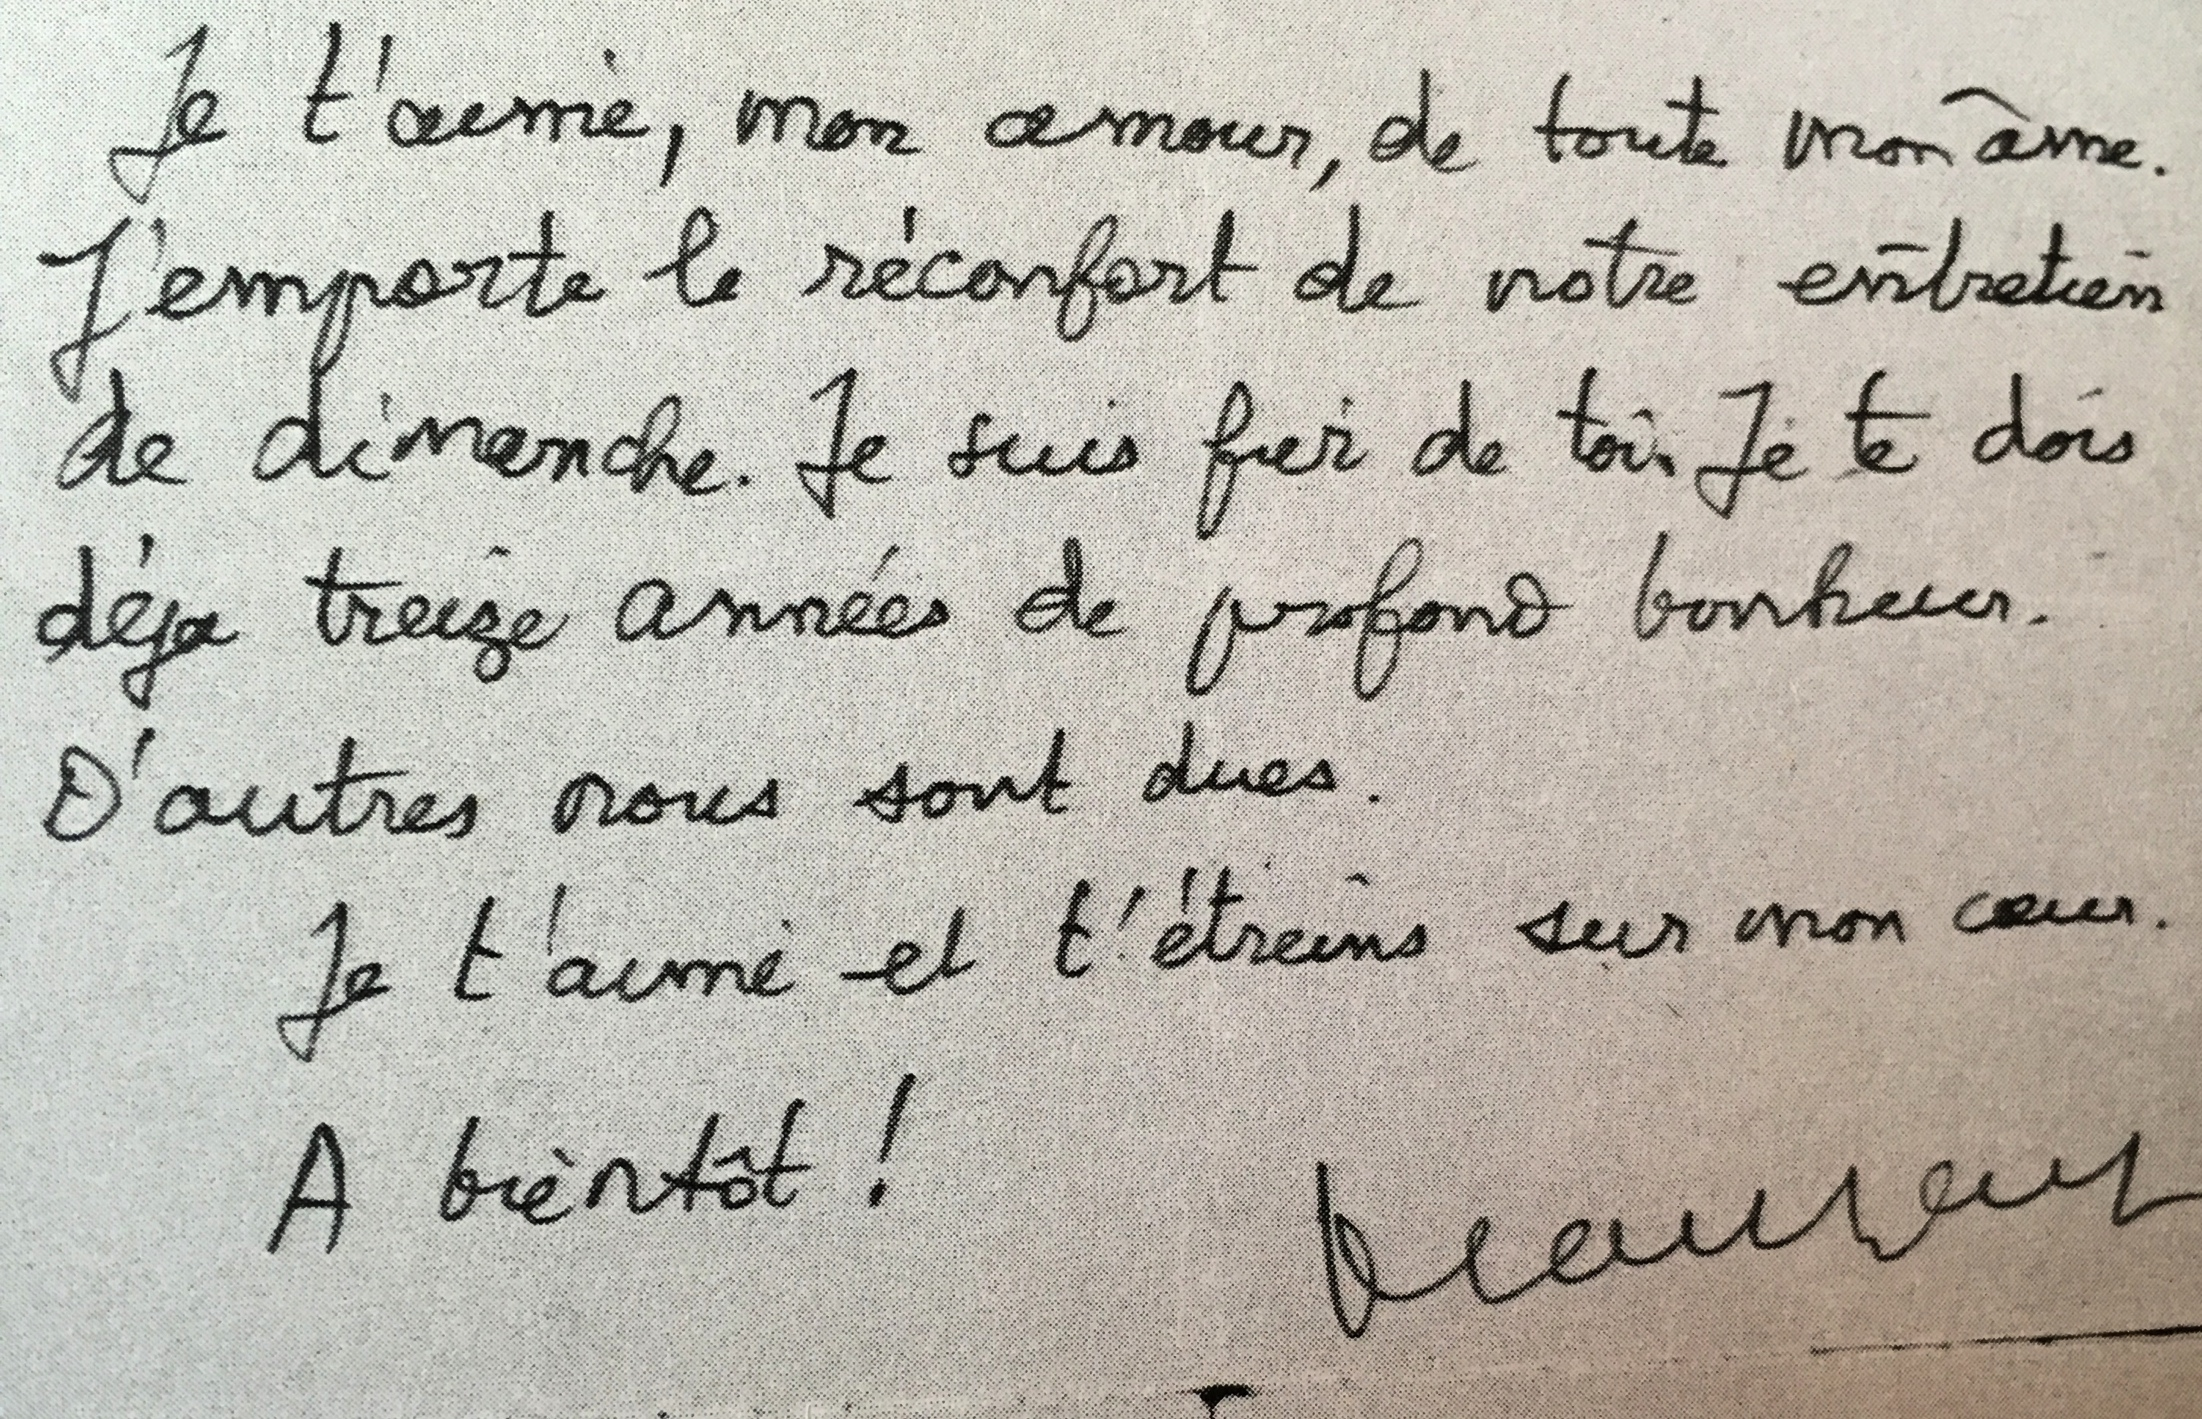 Je t'aime, mon amour, de toute mon âme.
J'emporte le réconfort de notre entretien
de dimanche. Je suis fier de toi. Je te dois
déja treize années de profond bonheur.
D'autres nous sont dues.
Je t'aime et t'étreins sur mon cœur.
A bientôt !